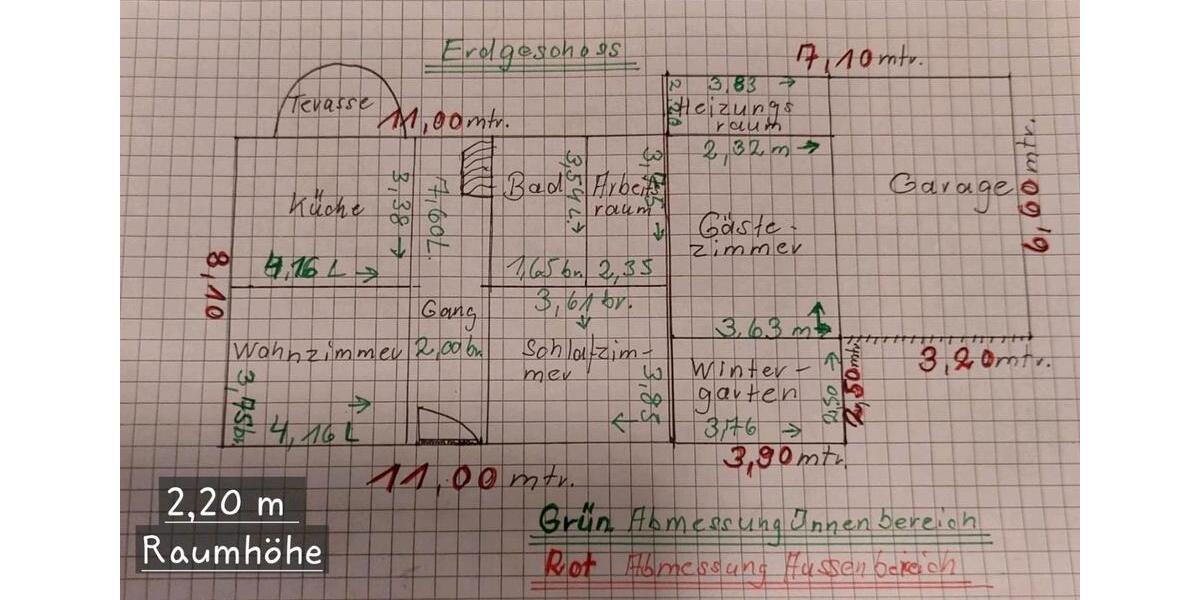 Erdgeschoss
7,10 mtr.
3,83
Terasse
11,00 mtr.
Heizungs
raum
2,32 m
6,00 mtr.
Küche
3,38
7,60 L.
Bad
3,54 L.
Arbeit
raum
Garage
Gäste-
zimmer
8,10
4,16 L
1,65 br.
2,35
3,61 br.
Gang
3,63 m
Wohnzimmer
2,00 br.
Schlafzim-
mer
3,85
Winter-
garten
2,50
3,20 mtr.
3,75 br.
4,16 L
3,76
3,90 mtr.
11,00 mtr.
2,20 m
Raumhöhe
Grün Abmessung Innenbereich
Rot Abmessung Aussenbereich